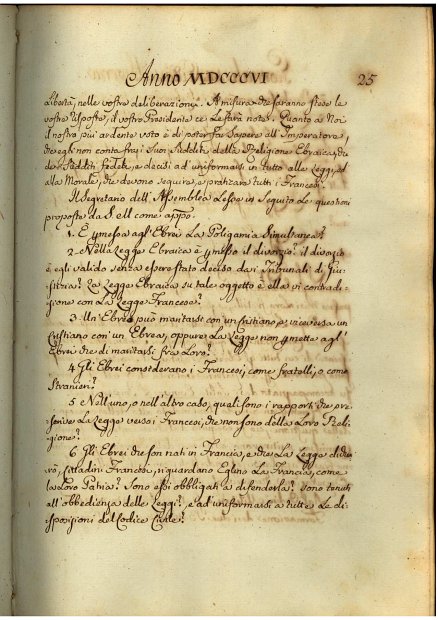 Anno MDCCCVI 25
Libertà, nelle vostre deliberazioni. A misura che saranno stese le
vostre risposte, il vostro Presidente ce Le farà note. Quanto a Noi
il nostro più ardente voto è di poter far sapere all'Imperatore,
che egli non conta fra i Suoi Sudditi della Religione Ebraica, che
de' Sudditi fedeli, e decisi ad uniformarsi in tutto alle Leggi, ed
alla Morale, che devono seguire, e praticare tutti i Francesi.
Il Segretario dell'Assemblea Lesse in Seguito Le questioni
proposte da S. e R. come appo.
1. È permessa agl'Ebrei La Poligamia Simultanea?
2. Nella Legge Ebraica è permesso il divorzio? il divorzio
è egli valido senza essere stato deciso dai Tribunali di Giu-
stizia? La Legge Ebraica su tale oggetto è ella in contradi-
zione con La Legge Francese?
3. Un'Ebrea può maritarsi con un Cristiano, e viceversa un
Cristiano con un'Ebrea, oppure La Legge non permette agl'
Ebrei che di maritarsi fra Loro?
4 Gli Ebrei considerano i Francesi, come fratelli, o come
Stranieri?
5 Nell'uno, o nell'altro caso, quali sono i rapporti, che pre-
scrive La Legge verso i Francesi, che non sono della Loro Reli-
gione?
6 Gli Ebrei che son nati in Francia, e che La Legge dichia-
rò, Cittadini Francesi, riguardano Eglino La Francia, come
la Loro Patria? Sono essi obbligati a difenderla? sono tenuti
all'obbedienza delle Leggi, e ad uniformarsi a tutte Le di-
sposizioni del Codice Civile?